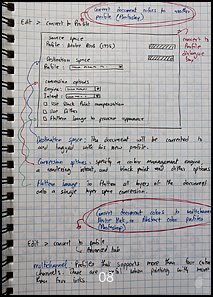 Convert document colors to another
profile (Photoshop)
Edit > Convert to Profile
Source Space
Profile: Adobe RGB (1998)
convert to
Profile
dialogue
box
Destination Space
Profile:
conversion options
Engine:
Intent:
Use Black Point Compensation
Use Dither
Flatten Image to preserve appearance
Destination Space: The document will be converted to
and tagged with this new profile.
Conversion options: Specify a color management engine,
a rendering intent, and black point and dither options
Flatten Image: To flatten all layers of the document
onto a single layer upon conversion.
08
Convert document colors to multichannel,
Device link, or Abstract color profiles
(Photoshop)
Edit > Convert to profile
Advanced tab
multichannel: Profiles that supports more than four color
channels. These are useful when printing with more
than four inks.